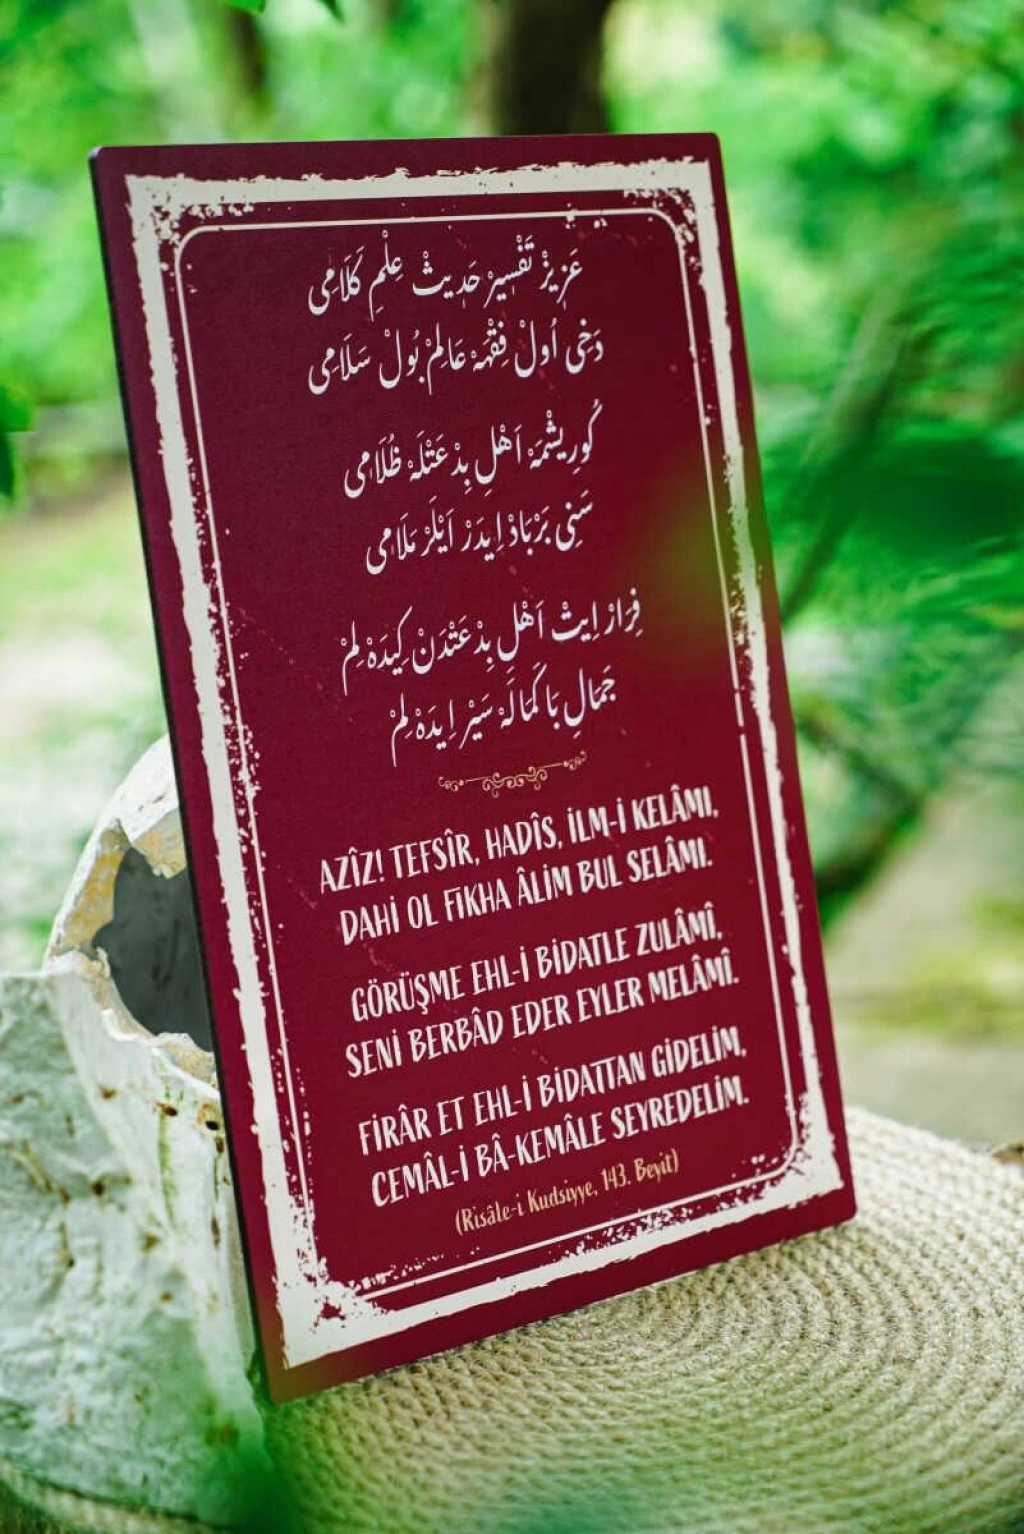 عَزِيزْ تَفْسِيرْ حَدِيثْ عِلْمِ كَلَامِى
دَخِى اُولْ فِقْهَه عَالِمْ بُولْ سَلَامِى
كُورِيشْمَه اَهْلِ بِدْعَتْلَه ظُلَامِى
سَنِى بَرْبَادْ اِيدَرْ اَيْلَرْ مَلَامِى
فِرَارْ اِيتْ اَهْلِ بِدْعَتْدَنْ كِيدَه لِمْ
جَمَالِ بَا كَمَالَه سَيْرْ اِيدَه لِمْ
AZÎZ! TEFSÎR, HADÎS, İLM-İ KELÂMI,
DAHİ OL FIKHA ÂLİM BUL SELÂMI.
GÖRÜŞME EHL-İ BİDATLE ZULÂMÎ,
SENİ BERBÂD EDER EYLER MELÂMÎ.
FİRÂR ET EHL-İ BİDATTAN GİDELİM,
CEMÂL-İ BÂ-KEMÂLE SEYREDELİM.
(Risâle-i Kudsiyye, 143. Beyit)